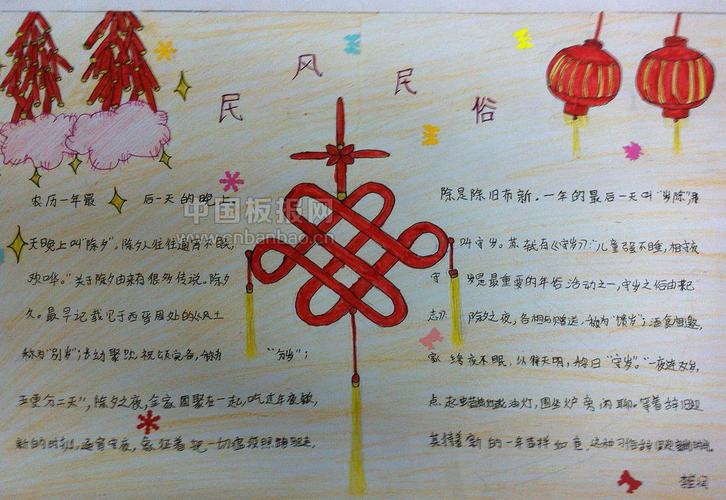 民风民俗
农历一年最 后一天的晚上
天晚上叫"除夕"。除夕人往往通宵不眠,
欢哗。"关于除夕由来有很多传说。除夕
久。最早记载见于西晋周处的《风土
称为"别岁";
"分岁";
五更分二天",除夕之夜,全家团聚在一起,吃过年夜饭,
新的时刻,通宵守夜,象征着把一切
除是除旧布新。一年的最后一天叫"岁除",
叫守岁。苏轼有《守岁》:"儿童强不睡,相守夜
守 岁是最重要的年俗活动之一,守岁之俗由来
志》 除夕之夜,各相与赠送,称为"馈岁";酒食相邀,
家 终夜不眠,以待天明,称曰"守岁"。"一夜连双岁,
点起 油灯,围坐炉旁闲聊。等着辞旧迎
新的一年吉祥如意,这种习俗
中国板报网
www.cnbanbao.cn